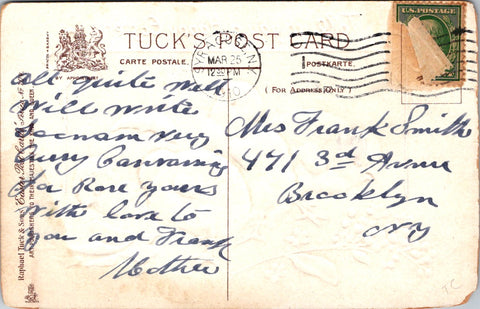 TUCK'S POST CARD
CARTE POSTALE.
POSTKARTE.
BY APPOINTMENT
MAR 26
12 PM
N.Y.
U.S. POSTAGE
( FOR ADDRESS ONLY )
Raphael Tuck & Sons'
ART PUBLISHERS TO THEIR MAJESTIES THE KING AND QUEEN
All quite well
Will write
soon am very
busy
for Rose yours
with love to
you and Frank
Mother
Mrs Frank Smith
471 3rd Avenue
Brooklyn
NY
TC